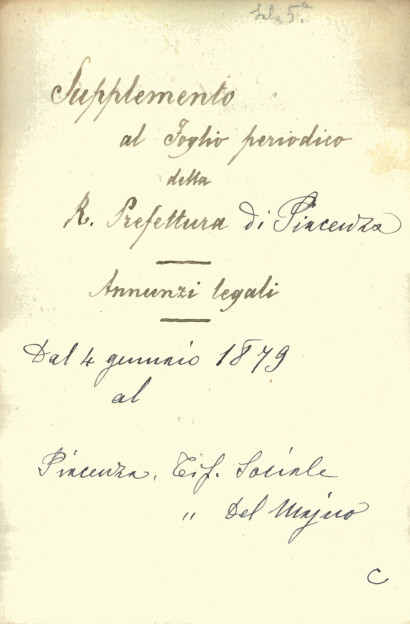 Sala 5.a
Supplemento
al Foglio periodico
della
R. Prefettura di Piacenza
Annunzi legali
Dal 4 gennaio 1879
al
Piacenza, Tip. Sociale
" Del Majno
C